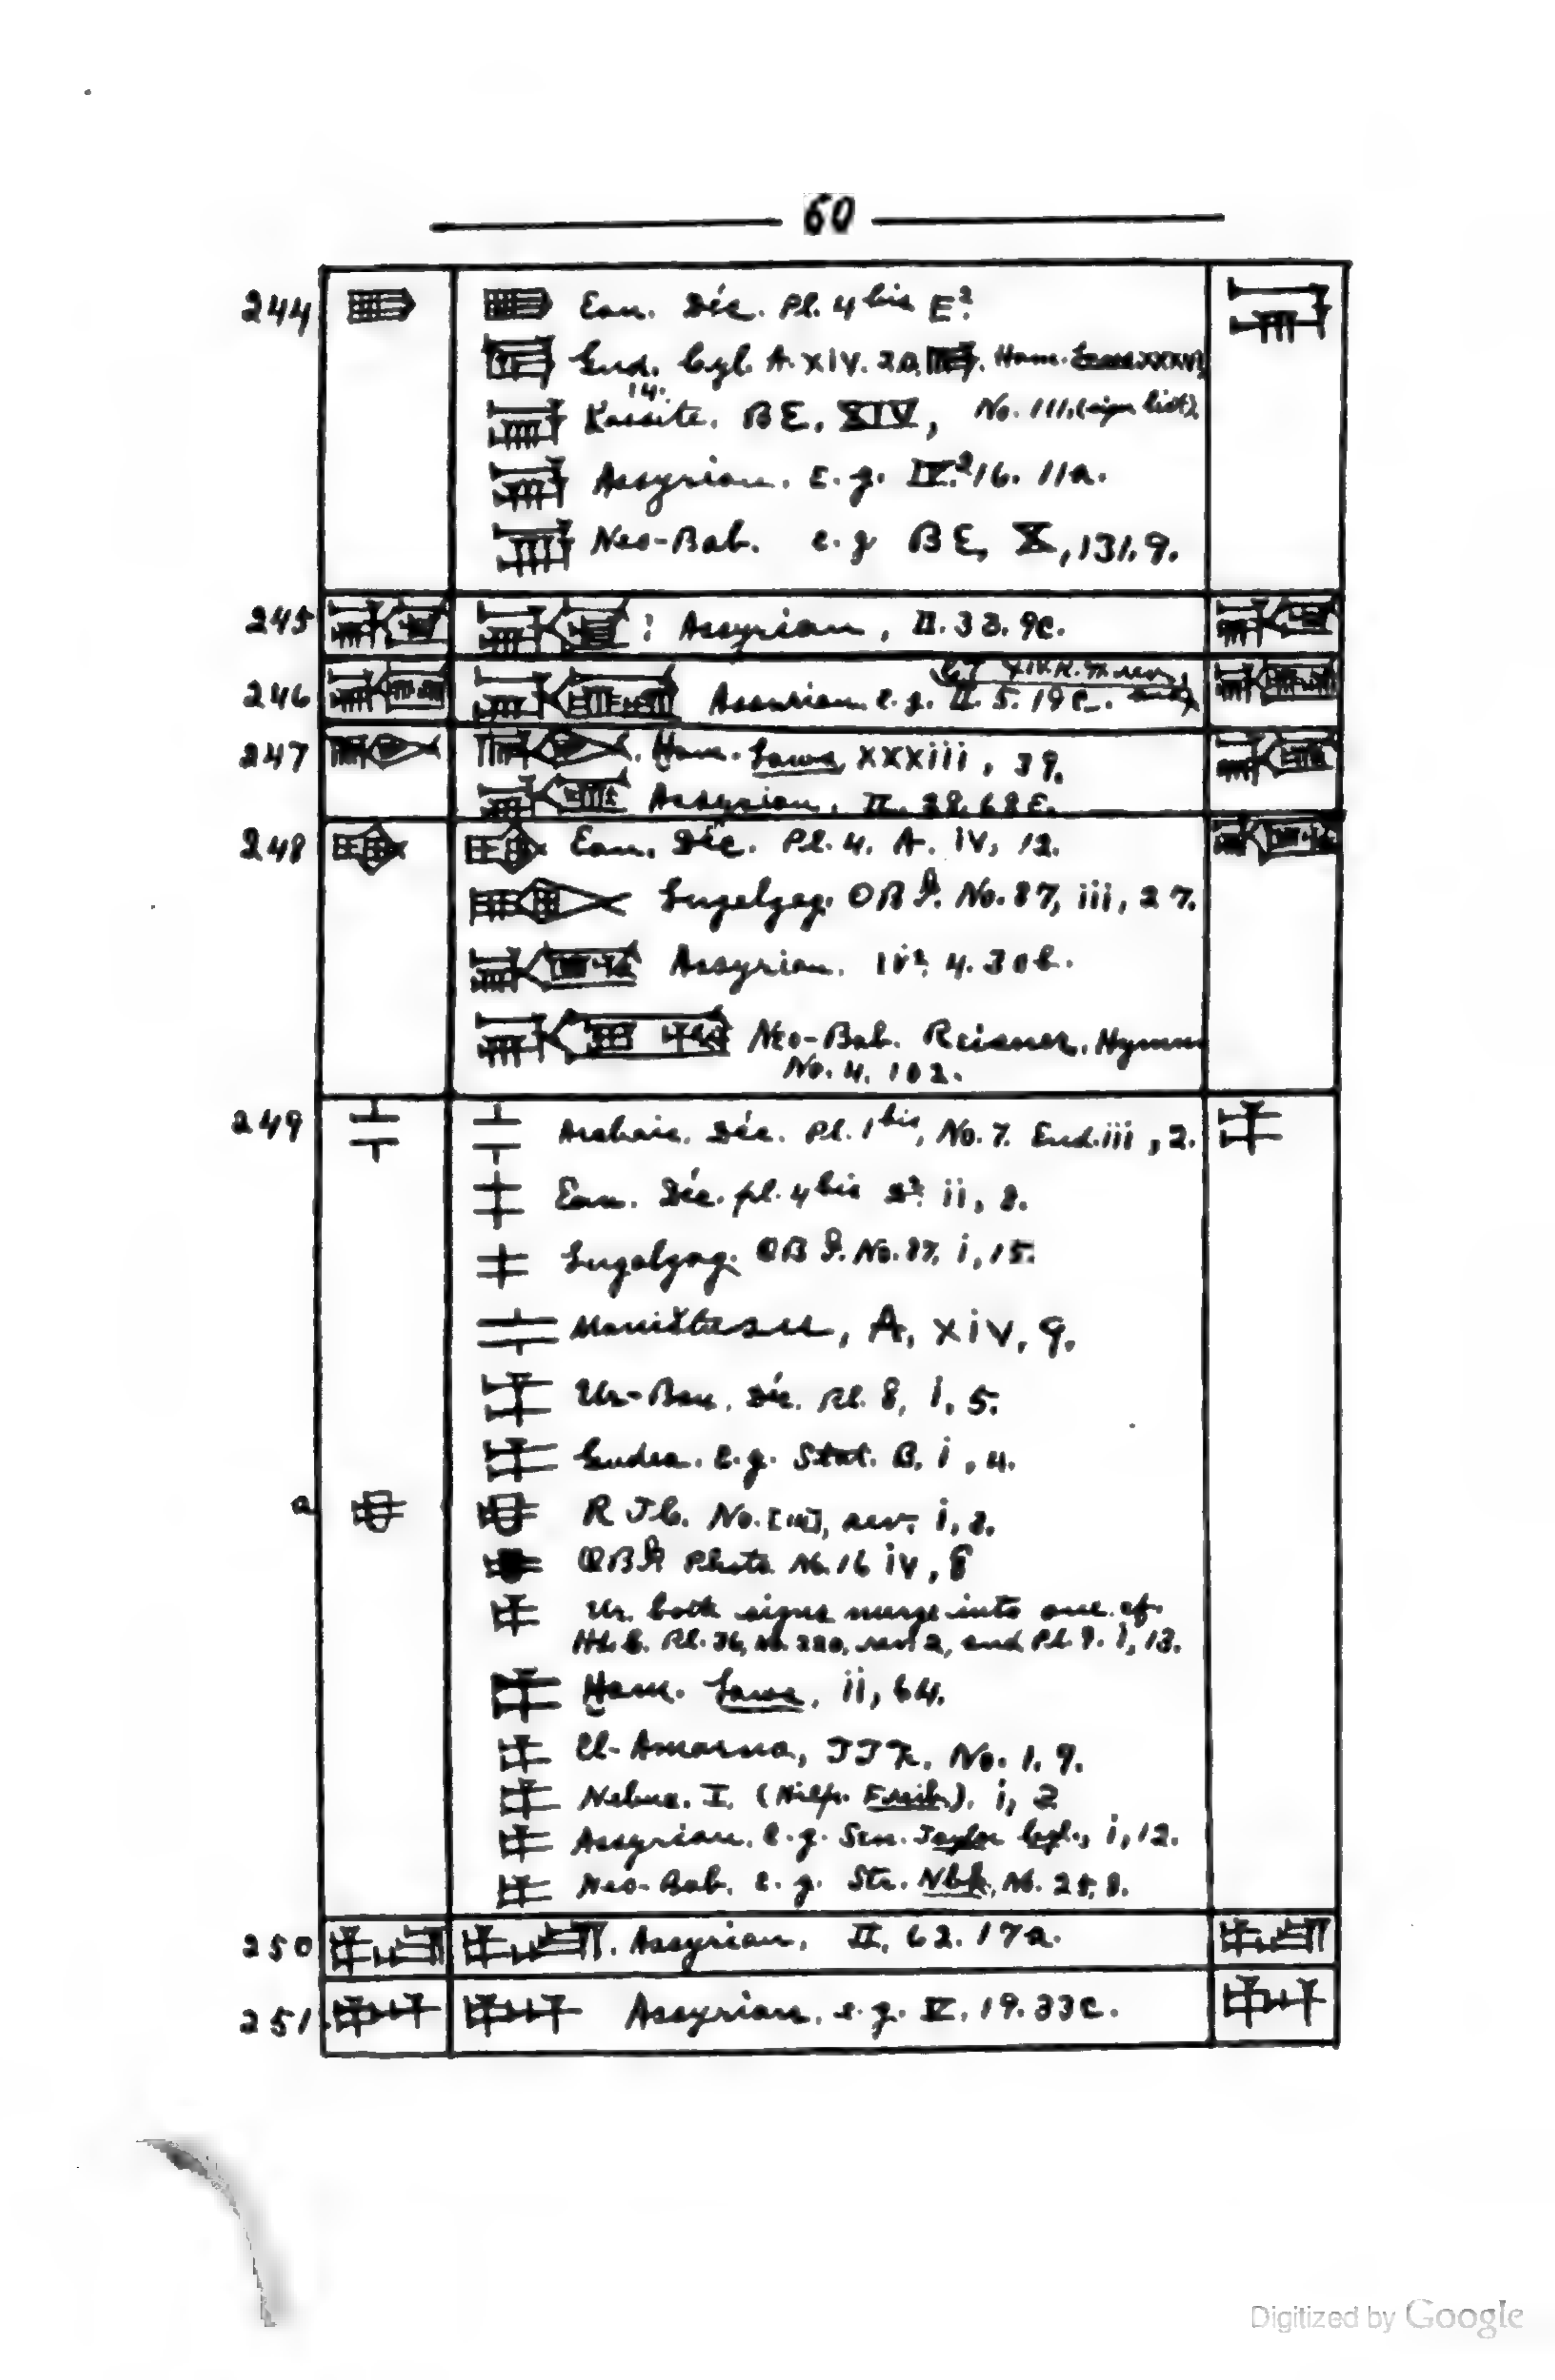 60
244 Ean. Déc. Pl. 4 bis E²
Gud. Cyl. A. xiv. 20, Ham. XXXVI,
14.
Kassite. BE, XIV, No. 111. (sign list)
Assyrian. E.g. IV² 16. 11a.
Neo-Bab. e.g BE, X, 131, 9.
245 : Assyrian, II. 33. 9c.
246 Assyrian e.g. II. 5. 19c.
247 Ham. Laws, xxxiii, 39.
Assyrian, II. 28. 68 E.
248 Ean. Déc. Pl. 4. A. iv, 12.
Lugalzag. OBI. No. 87, iii, 27.
Assyrian. IV² 4. 30b.
Neo-Bab. Reisner, Hymn
No. 4. 102.
249 Archaic. Déc. Pl. 1 bis, No. 7. iii, 2.
Ean. Déc. pl. 4 bis ii, 8.
Lugalzag. OBI. No. 87, i, 15.
Maništusu, A, xiv, 9.
Ur-Bau, Déc. Pl. 8, i, 5.
Gudea. e.g. Stat. B. i, 4.
a No. rev. i, 2.
OBI Photo No. 16 iv, 8
Ur. both signs merge into one. cf.
Pl. 36, No. 220, and Pl. 9. i, 13.
Ham. Laws, ii, 64.
El-Amarna, No. 1. 9.
Nebuc. I. (Hilp. Freib.). i, 2
Assyrian, e.g. Sen. Taylor Cyl., i, 12.
Neo-Bab. e.g. Str. Nbk, No. 25, 8.
250 Assyrian, II, 62. 17a.
251 Assyrian, e.g. V. 19. 33c.
Digitized by Google